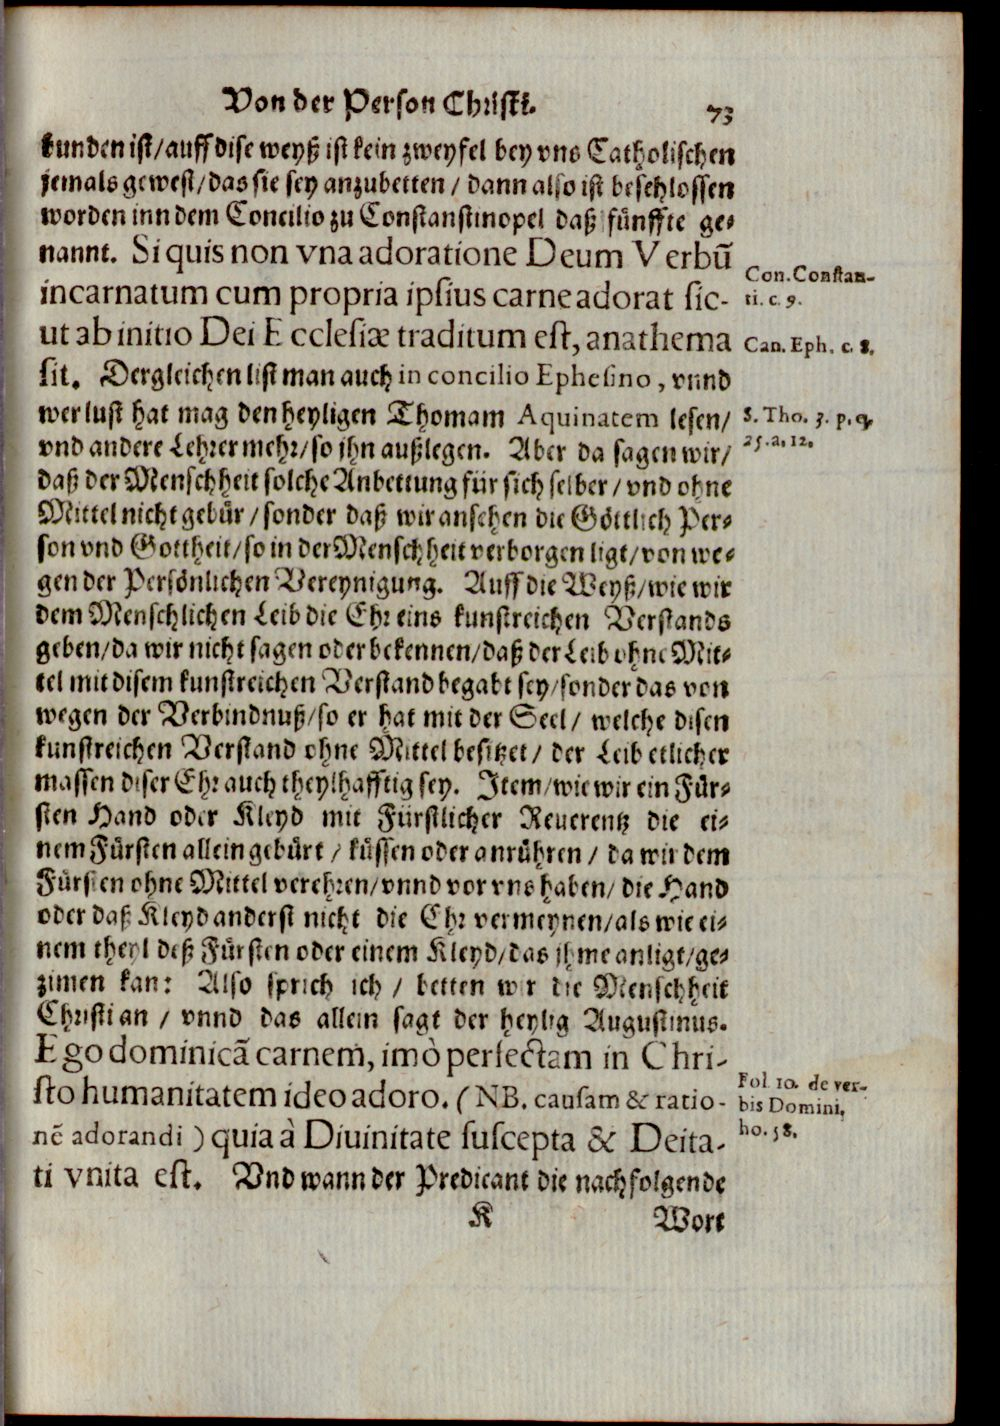 Von der Person Christi.
73
kunden ist/auff dise weyß ist kein zweyfel bey vns Catholischen
jemals gewest/das sie sey anzubetten/dann also ist beschlossen
worden inn dem Concilio zu Constanstinopel daß fünffte ge-
nannt. Si quis non vna adoratione Deum Verbū
incarnatum cum propria ipsius carne adorat sic-
ut ab initio Dei Ecclesiæ traditum est, anathema
sit. Dergleichen list man auch in concilio Ephesino, vnnd
wer lust hat mag den heyligen Thomam Aquinatem lesen/
vnd andere Lehrer mehr/so ihn außlegen. Aber da sagen wir/
daß der Menschheit solche Anbettung für sich selber/vnd ohne
Mittel nicht gebür/sonder daß wir ansehen die Göttlich Per-
son vnd Gottheit/so in der Menschheit verborgen ligt/von we-
gen der Persönlichen Vereynigung. Auff die Weyß/wie wir
dem Menschlichen Leib die Ehr eins kunstreichen Verstands
geben/da wir nicht sagen oder bekennen/daß der Leib ohne Mit-
tel mit disem kunstreichen Verstand begabt sey/sonder das von
wegen der Verbindnuß/so er hat mit der Seel/welche disen
kunstreichen Verstand ohne Mittel besitzet/der Leib etlicher
massen diser Ehr auch theylhafftig sey. Item/wie wir ein Für-
sten Hand oder Kleyd mit Fürstlicher Reuerentz die ei-
nem Fürsten allein gebürt/küssen oder anrühren/da wir dem
Fürsten ohne Mittel verehren/vnnd vor vns haben/die Hand
oder daß Kleyd anderst nicht die Ehr vermeynen/als wie ei-
nem theyl deß Fürsten oder einem Kleyd/das ihme anligt/ge-
zimen kan: Also sprich ich/betten wir die Menschheit
Christi an/vnnd das allein sagt der heylig Augustinus.
Ego dominicā carnem, imò perfectam in Chri-
sto humanitatem ideo adoro. (NB. causam & ratio-
nē adorandi) quia à Diuinitate suscepta & Deita-
ti vnita est. Vnd wann der Predicant die nachfolgende
K
Wort
Con. Constan-
ti. c. 9.
Can. Eph. c. 8.
S. Tho. 3. p. q.
25. a. 12.
Fol. 10. de ver-
bis Domini,
ho. 58.